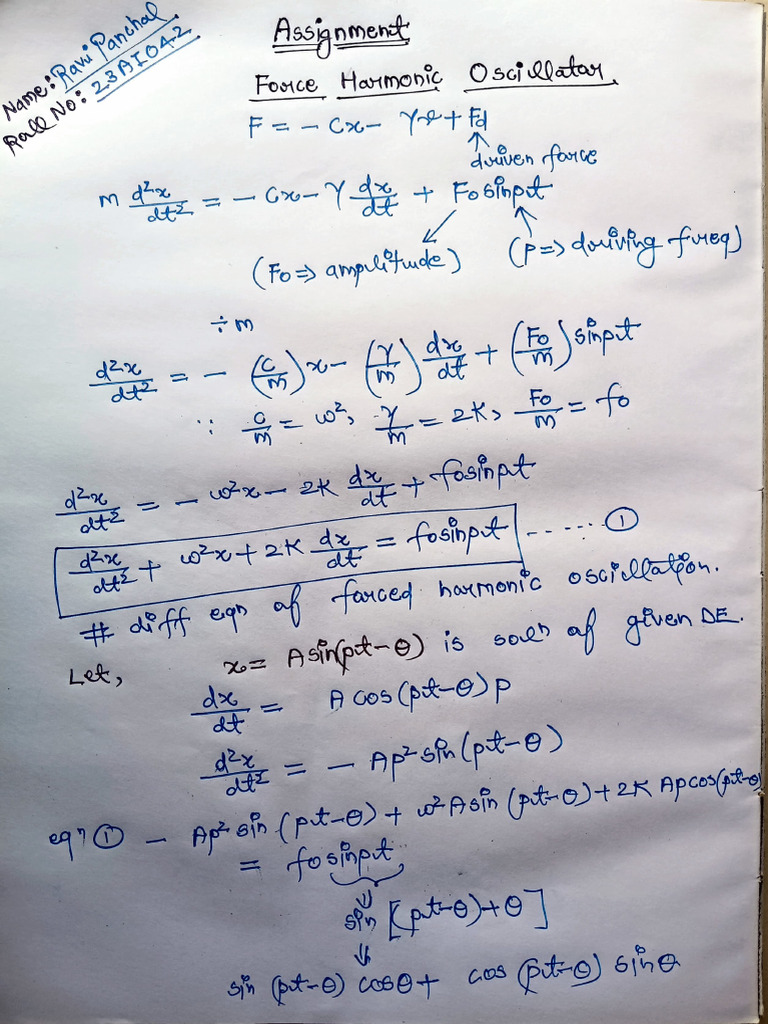 Name: Ravi Panchal
Roll No: 23AI042
Assignment
Force Harmonic Oscillator
F = - Cx - γv + Fd
driven force
m d²x/dt² = - Cx - γ dx/dt + F₀ sinpt
(F₀ => amplitude) (P => driving freq)
÷m
d²x/dt² = - (C/m)x - (γ/m) dx/dt + (F₀/m) sinpt
∵ C/m = ω², γ/m = 2K, F₀/m = f₀
d²x/dt² = - ω²x - 2K dx/dt + f₀sinpt
d²x/dt² + ω²x + 2K dx/dt = f₀sinpt ...... ①
# diff eqn of forced harmonic oscillation.
Let, x = A sin(pt-θ) is soln of given DE.
dx/dt = A cos(pt-θ) P
d²x/dt² = - Ap² sin(pt-θ)
eqn ① - Ap² sin(pt-θ) + ω² A sin(pt-θ) + 2K Ap cos(pt-θ)
= f₀ sinpt
sin [(pt-θ)+θ]
sin (pt-θ) cosθ + cos (pt-θ) sinθ